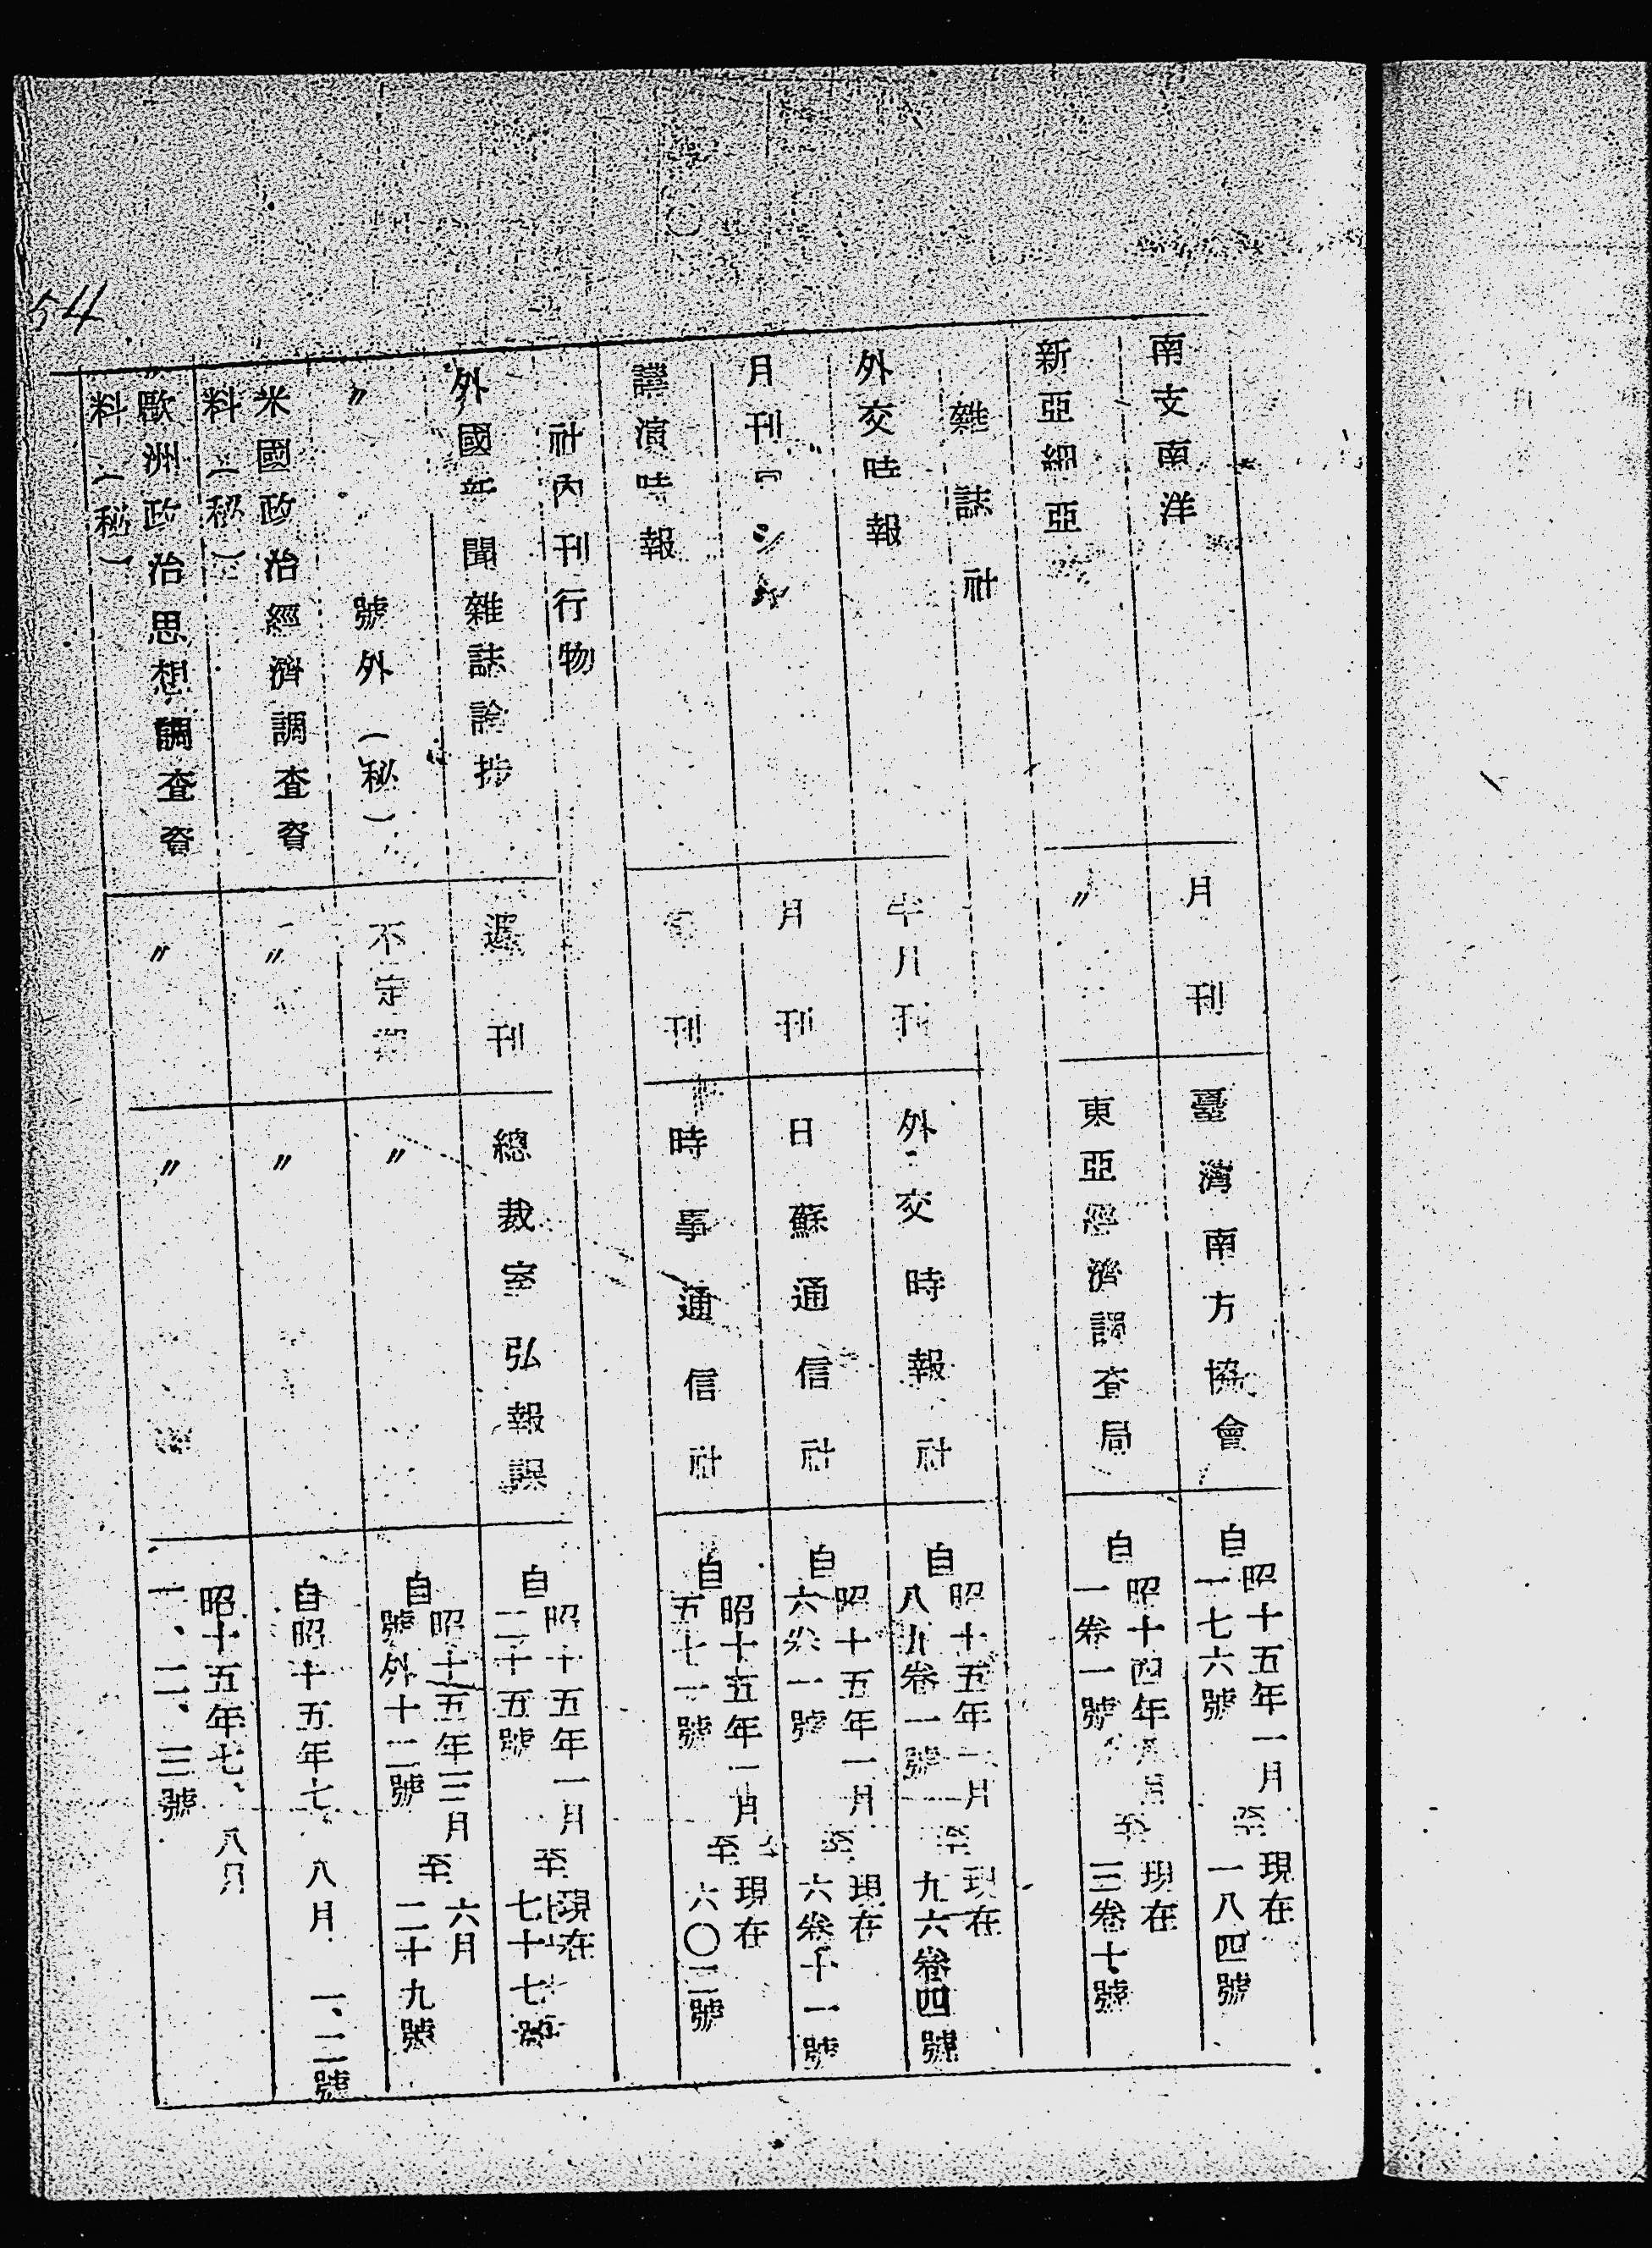 南支南洋 月刊 臺灣南方協會 自昭十五年一月一七六號 至現在一八四號
新亞細亞 〃 東亞經濟調查局 自昭十四年八月一卷一號 至現在三卷十號
雜誌社
外交時報 半月刊 外交時報社 自昭十五年一月八九卷一號 至現在九六卷四號
月刊 月刊 日蘇通信社 自昭十五年一月六卷一號 至現在六卷十一號
講演時報 旬刊 時事通信社 自昭十五年一月五十一號 至現在六〇二號
社內刊行物
外國新聞雜誌論抄 週刊 總裁室弘報課 自昭十五年一月二十五號 至現在七十七號
〃 號外(秘) 不定期 〃 自昭十五年三月號外十二號 至六月二十九號
米國政治經濟調查資料(秘) 〃 〃 自昭十五年七、八月 一、二號
歐洲政治思想調查資料(秘) 〃 〃 昭十五年七、八月一、二、三號
54